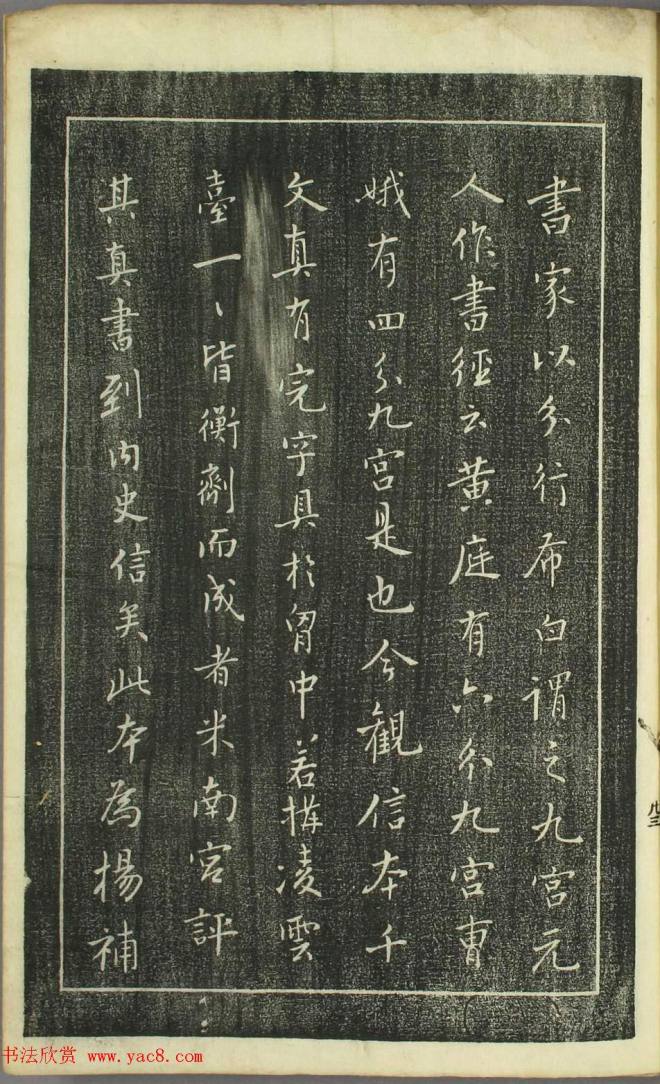 書家以分行布白謂之九宮元
人作書徑云黄庭有六分九宮曹
娥有四分九宮是也今觀信本千
文真有完字具於胷中若構凌雲
臺一〻皆衡劑而成者米南宮評
其真書到内史信矣此本為楊補
书法欣赏 www.yac8.com